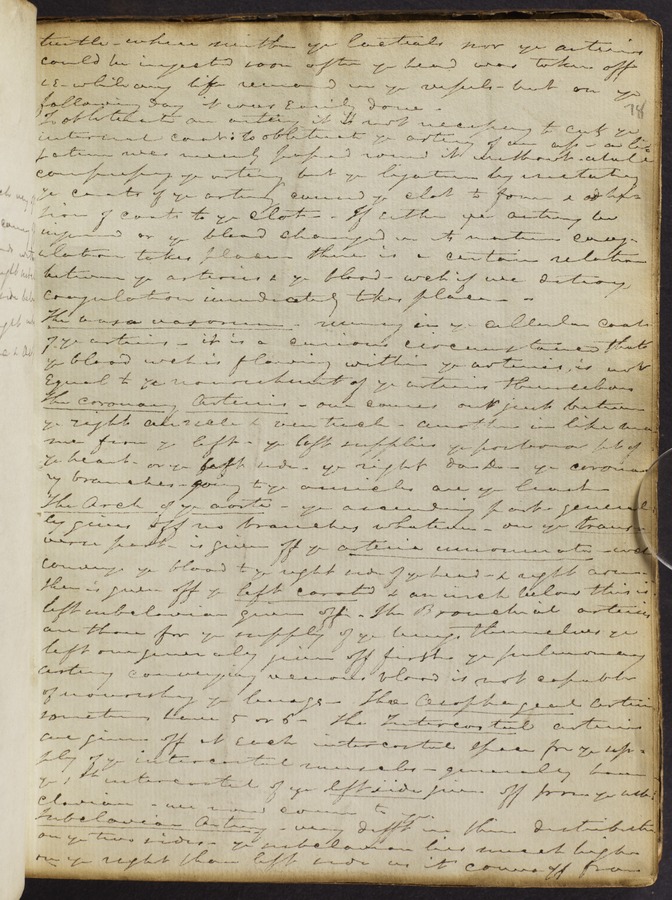 turtle - where neither ye lacteals nor ye arteries
could be injected soon after ye head was taken off
i.e. while any life remained in ye vessels - but on ye
following day it was easily done -
78
To obliterate an artery it is not necessary to cut ye
internal coat: to obliterate ye artery of an ass - a
was merely passed round it without
compressing ye artery but ye ligature by irritating
ye coats of ye artery caused ye clot to form & adhe
sion of coats to ye clot - If either ye artery be
injured or ye blood changed in its nature coag-
ulation takes place - there is a certain relation
between ye arteries & ye blood - wch if we destroy
coagulation immediately takes place -
The vasa vasorum - running in ye cellular coat
of ye arteries - it is a curious circumstance that
ye blood wch is flowing within ye arteries, is not
equal to ye nourishment of ye arteries themselves
The coronary Arteries - one comes out just between
ye right auricle & ventricle - another in like man
ner from ye left - ye left supplies ye posterior pt of
ye heart - or ye left side - ye right do. do - ye coronar
y branches going to ye auricles are ye least
The Arch of ye aorta - ye ascending part general
ly gives off no branches whatever - on ye trans
verse part - is given off ye arteria innominata - wch
conveys ye blood to ye right side of ye head - & right arm -
then is given off ye left carotid & an inch below this is
left subclavian given off - The Bronchial arteries
are those for ye supply of ye lungs themselves ye
left one generally given off first - ye pulmonary
artery conveying venous blood is not capable
of nourishing ye lungs - The Oesophageal arteries
sometimes have 5 or 6 - The Intercostal arteries
are given off at each intercostal space for ye sup-
ply of ye intercostal muscles - generally have
ye 1st intercostal of ye left side given off from ye sub
clavian - we now come to ye
Subclavian Artery - very difft in their distribution
on ye two sides - ye subclavian lies much higher
on ye right than left side as it comes off from